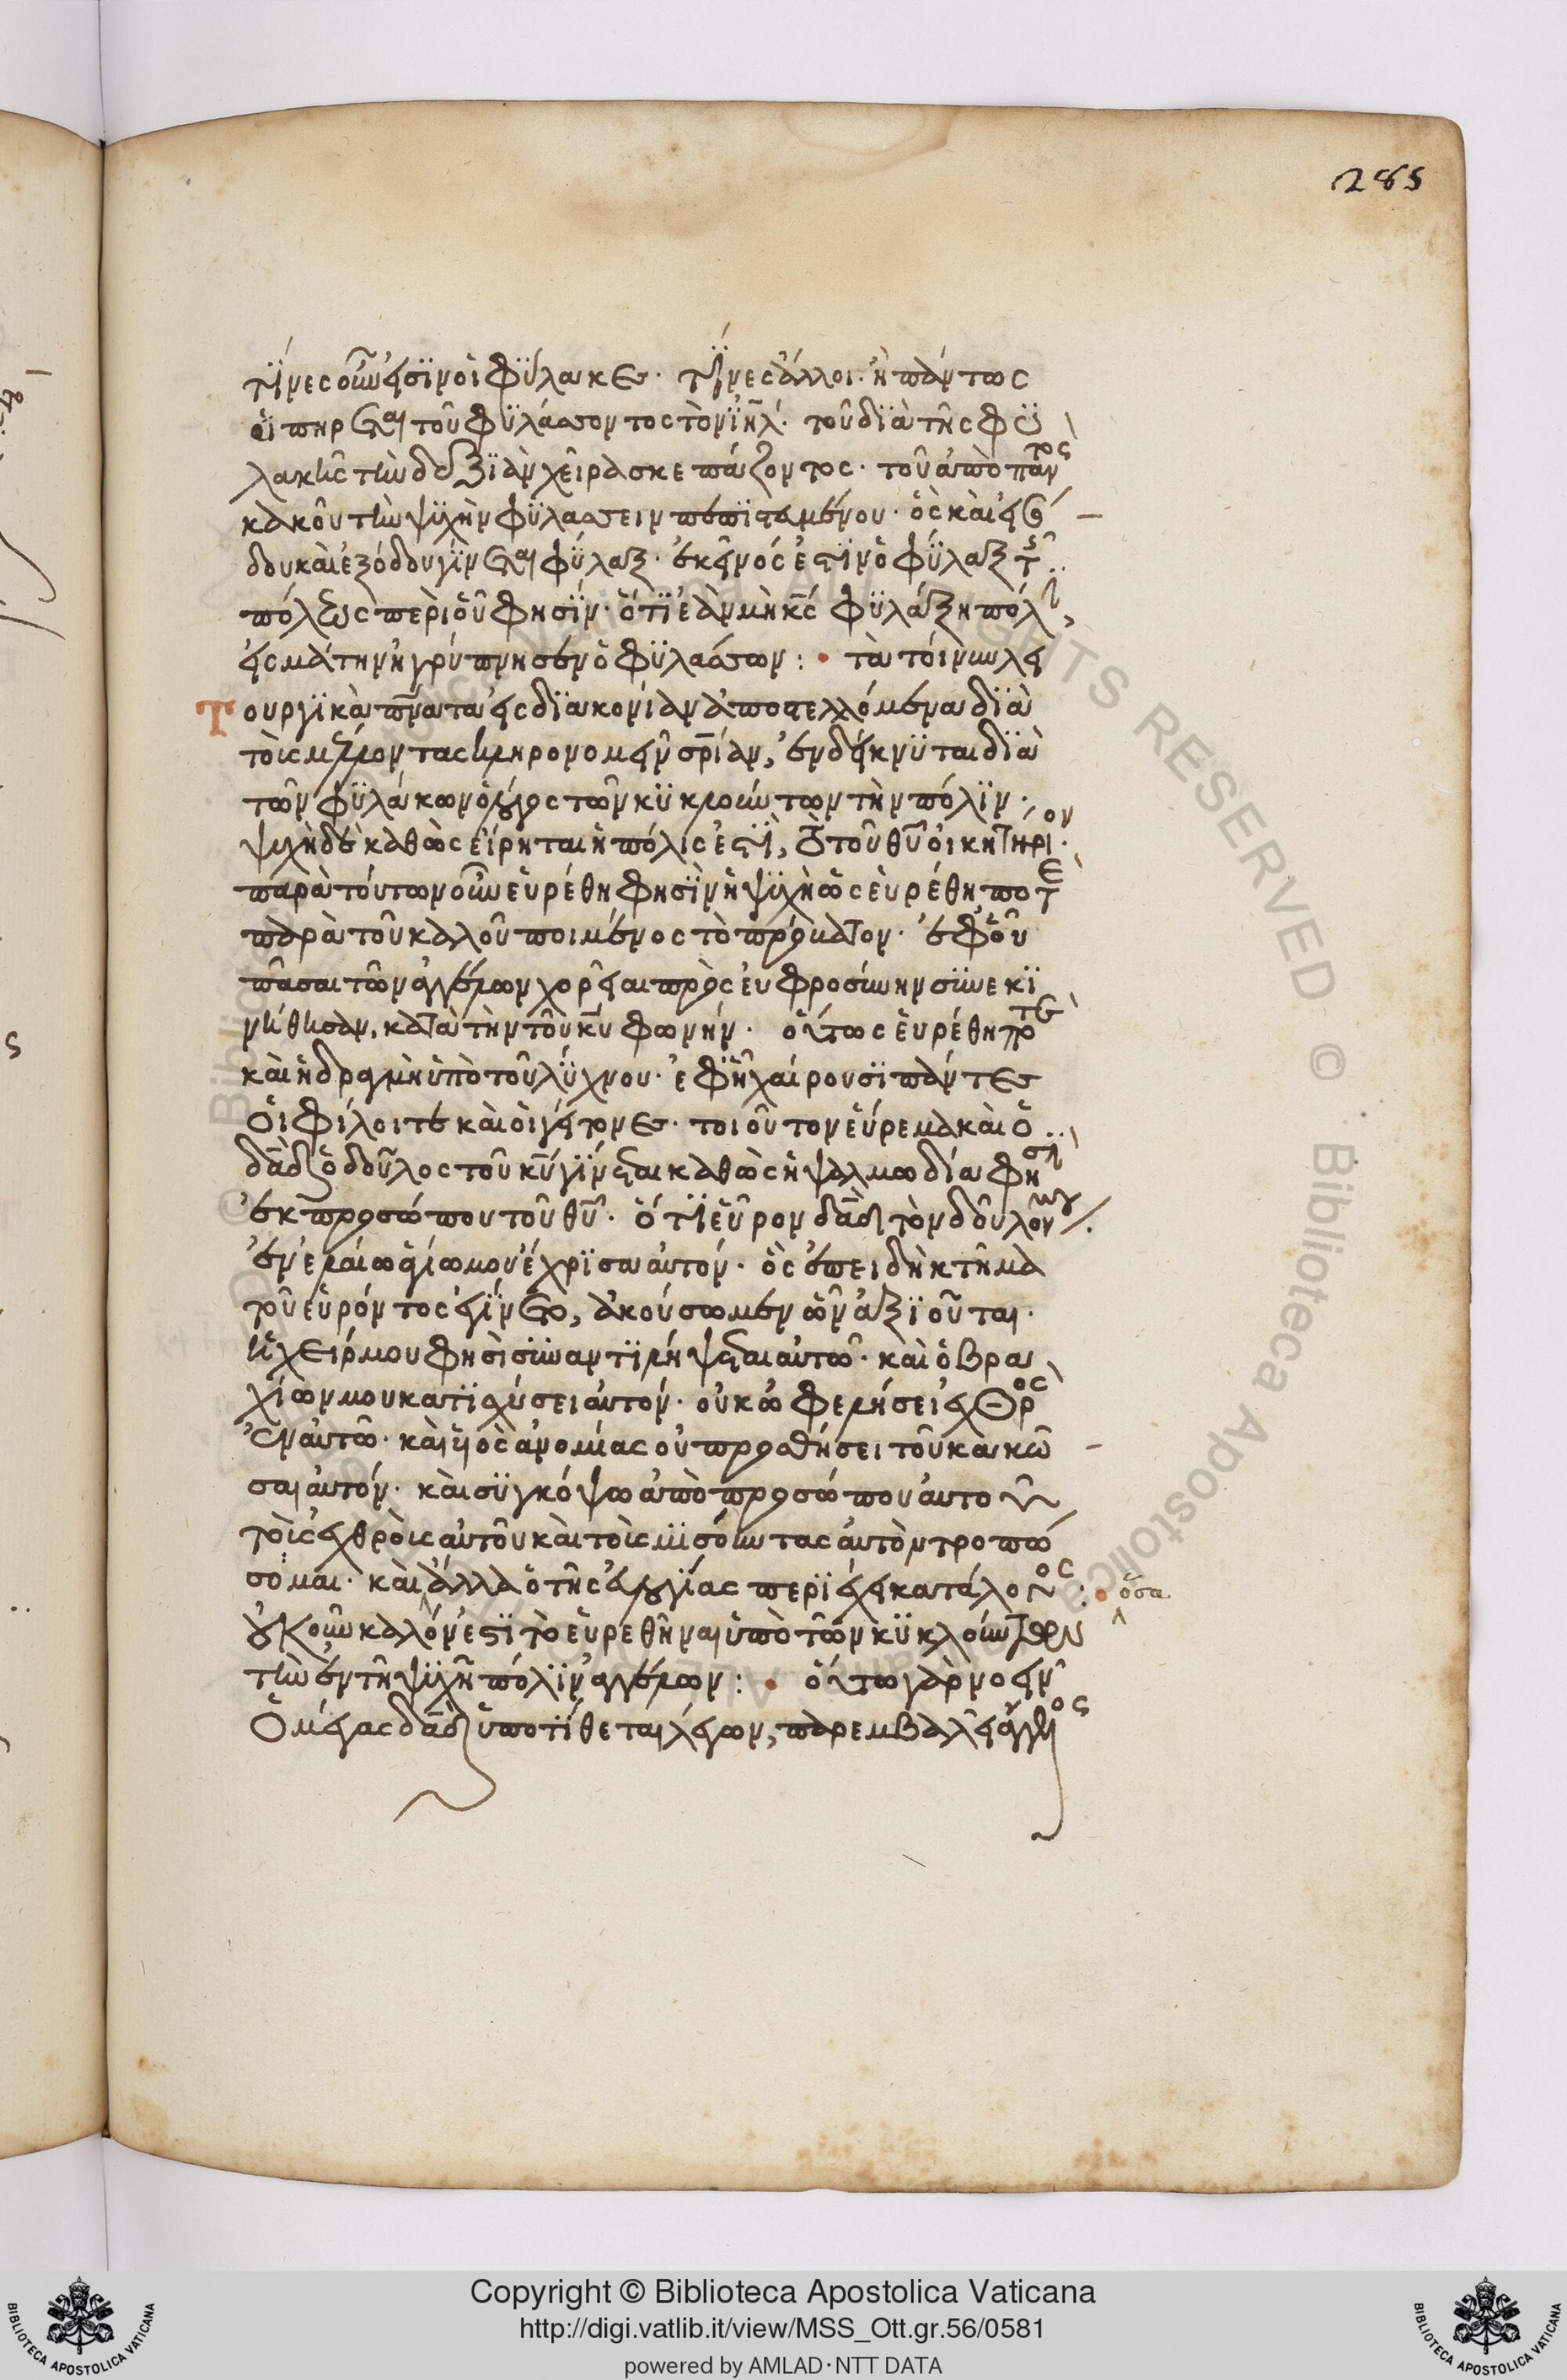 285
τίνες οὖν εἰσϊν οἱ φύλακες· τίνες ἄλλοι· ἢ πάντως
οἱ ὑπηρέται τοῦ φυλάσσοντος τὸν ἰηλ· τοῦ διὰ τῆς φυ
λακῆς τὴν δεξιὰν χεῖρα σκεπάζοντος· τοῦ ἀπὸ παντὸς
κακοῦ τὴν ψυχὴν φυλάσσειν πεπιστευμένου· ὃς καὶ εἰσό
δου καὶ ἐξόδου γίνεται φύλαξ· ἐκεῖνός ἐστιν ὁ φύλαξ τῆς
πόλεως περὶ οὗ φησϊν· ὅτι ἐὰν μὴ κς φυλάξῃ πόλιν,
εἰς μάτην ἠγρύπνησεν ὁ φυλάσσων: τὰ τοίνυν λει
τουργικὰ πνατα εἰς διακονίαν ἀποστελλόμενα διὰ
τοὺς μέλλοντας κληρονομεῖν σρίαν, ἐνδείκνυται διὰ
τῶν φυλάκων ὁ λόγος τῶν κυκλούντων τὴν πόλιν·
ψυχὴ δὲ καθὼς εἴρηται ἡ πόλις ἐστὶ, τὸ τοῦ θυ οἰκητήριον·
παρὰ τούτων οὖν εὑρέθη φησὶν ἡ ψυχὴ ὡς εὑρέθη ποτὲ
παρὰ τοῦ καλοῦ ποιμένος τὸ πρόβατον· ἐφ' οὗ
πᾶσαι τῶν ἀγγέλων χορεῖαι πρὸς εὐφροσύνην συνεκι
νήθησαν, κατὰ τὴν τοῦ κυ φωνήν· οὕτως εὑρέθη ποτὲ
καὶ ἡ δραχμὴ ὑπὸ τοῦ λύχνου· ἐφ' ᾗ χαίρουσι πάντες
οἱ φίλοι τε καὶ οἱ γείτονες· τοιοῦτον εὕρεμα καὶ ὁ
δαδ ὁ δοῦλος τοῦ κυ γίνεται καθὼς ἡ ψαλμωδία φησὶν
ἐκ προσώπου τοῦ θυ· ὅτι εὗρον δαδ τὸν δοῦλόν μου
ἐν ἐλαίω ἁγίω μου ἔχρισα αὐτόν· ὃς ἐπειδὴ κτῆμα
τοῦ εὑρόντος ἐγίνετο, ἀκούσωμεν ὧν ἀξιοῦται·
ἡ χείρ μου φησὶ συναντιλήψεται αὐτῶ· καὶ ὁ βρα
χίων μου κατισχύσει αὐτόν· οὐκ ὠφελήσει ἐχθρὸς
ἐν αὐτῶ· καὶ υἱὸς ἀνομίας οὐ προσθήσει τοῦ κακῶ
σαι αὐτόν· καὶ συγκόψω ἀπὸ προσώπου αὐτοῦ
τοὺς ἐχθροὺς αὐτοῦ καὶ τοὺς μισοῦντας αὐτὸν τροπώ
σομαι· καὶ ἄλλα ὁ τῆς εὐλογίας περιέχει κατάλογος· ὅσα
οὐκοῦν καλόν ἐστι τὸ εὑρεθῆναι ὑπὸ τῶν κυκλούντων
τὴν ἐν τῆ ψυχῆ πόλιν ἀγγέλων: οὕτω γὰρ νοεῖν
ὁ μέγας δαδ ὑποτίθεται λέγων, παρεμβαλεῖ ἄγγελος
Copyright © Biblioteca Apostolica Vaticana
http://digi.vatlib.it/view/MSS_Ott.gr.56/0581
powered by AMLAD·NTT DATA